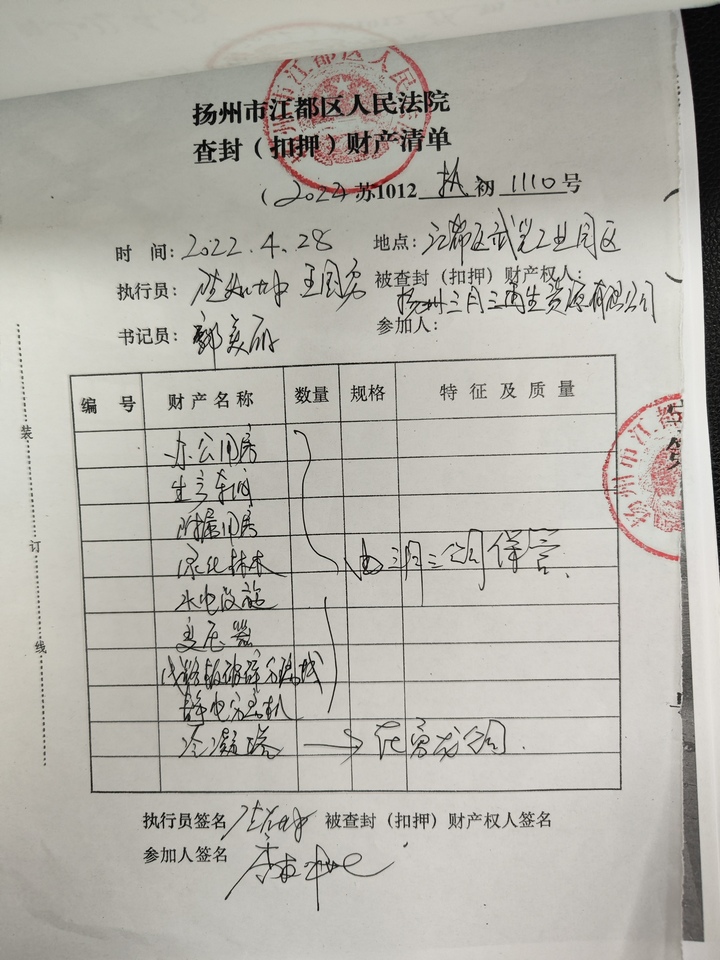 扬州市江都区人民法院
查封（扣押）财产清单
（2022）苏1012 执 初 1110 号
时 间：2022.4.28 地点：江都区武坚工业园区
执行员： 王国安 被查封（扣押）财产权人：
扬州三月三再生资源有限公司
书记员：郭美丽 参加人：
编 号 财产名称 数量 规格 特征及质量
办公用房
生产车间
附属用房
绿化林木 由三月三公司保管.
水电设施
变压器
线路板破碎分离线
静电分离机
冷凝塔 → 在 公司.
执行员签名 被查封（扣押）财产权人签名
参加人签名
装
订
线
扬州市江都